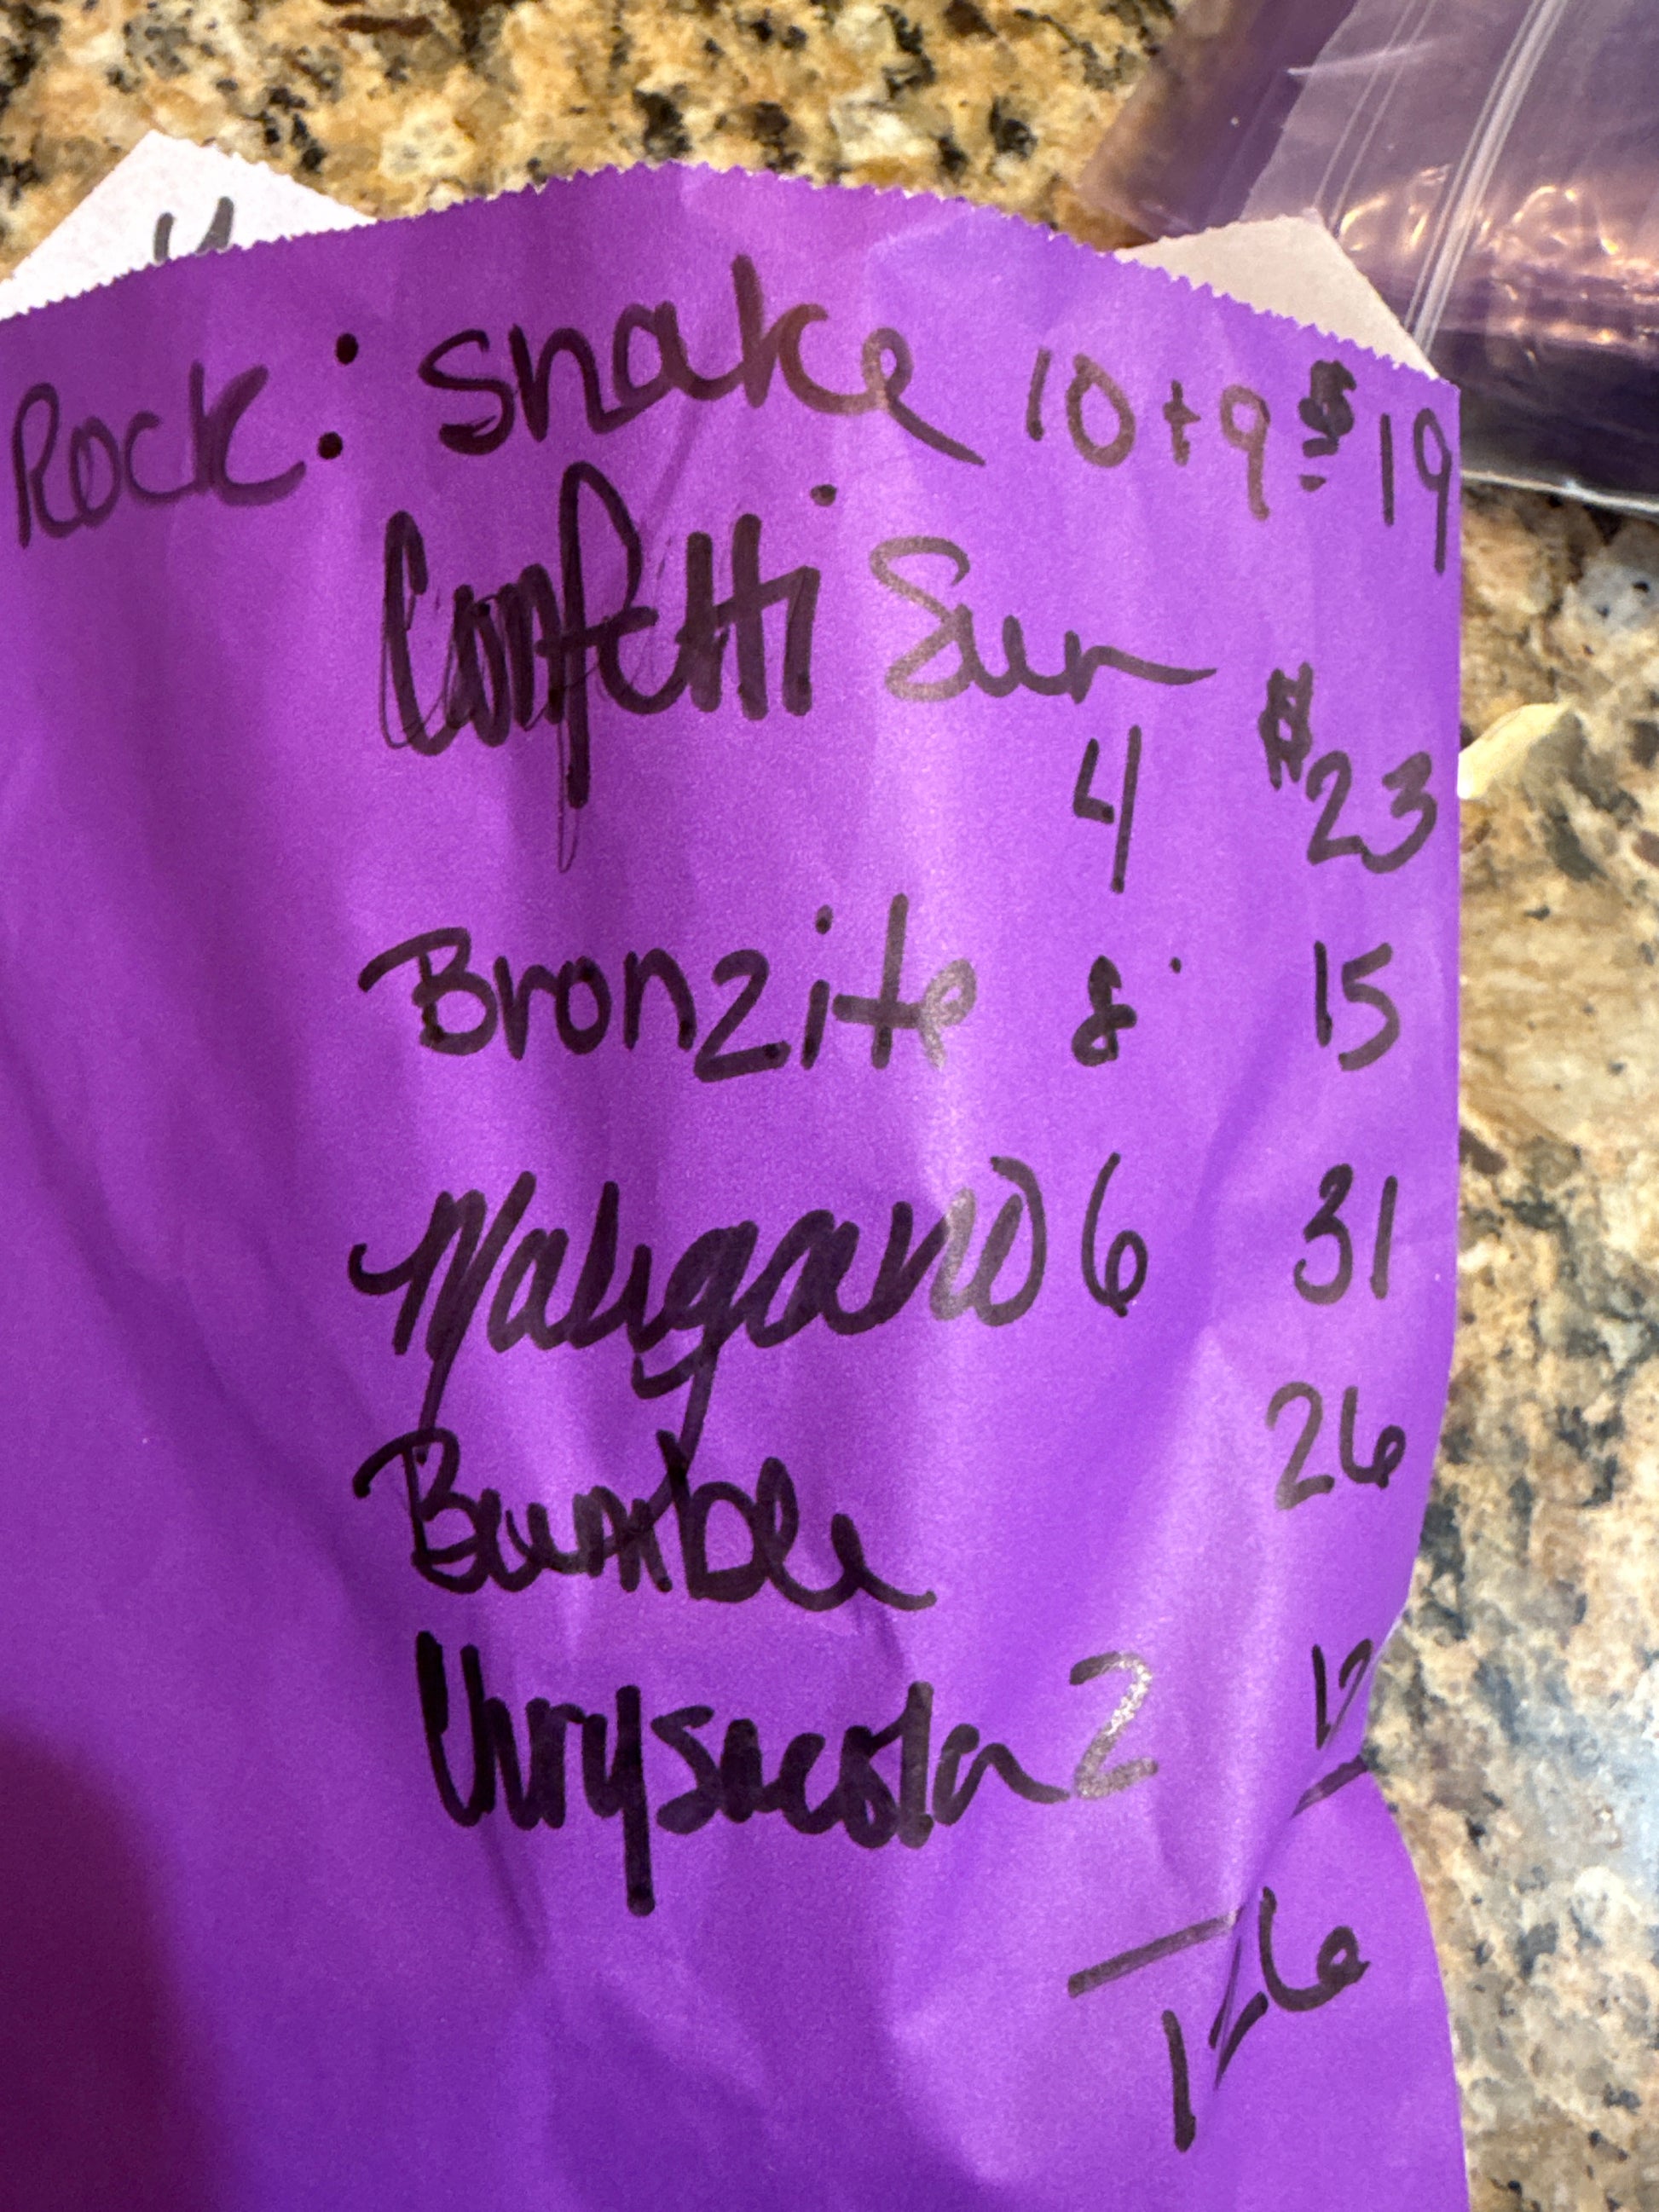 4
Rock: Snake 10+9 $19
Confetti Sun
4 $23
Bronzite 8 15
6 31
Bumble 26
Chrysocola 2 12
126